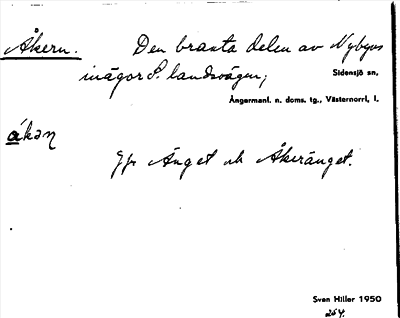 Åkern. Den branta delen av Nybyns
inägor S. landsvägen;
Sidensjö sn,
Ångermanl. n. doms. tg., Västernorrl. l.
åkaɳ
Jfr Änget och Åkeränget.
Sven Hiller 1950
264.